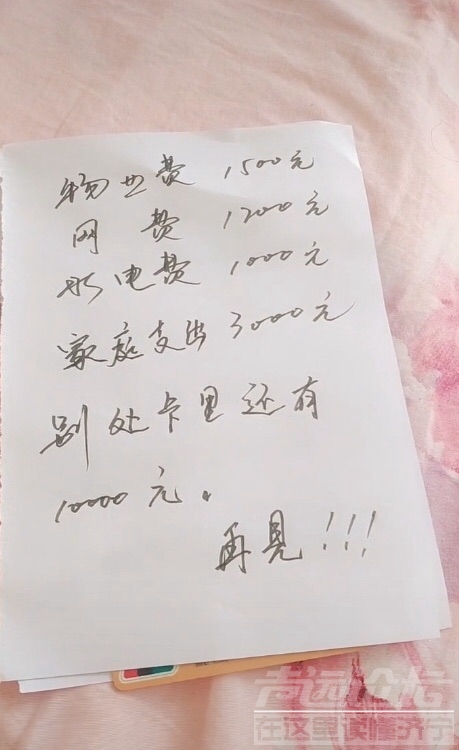 物业费 1500元
网 费 1200元
水电费 1000元
家庭支出 3000元
别处卡里还有
10000元。
再见!!!
在这里读懂济宁